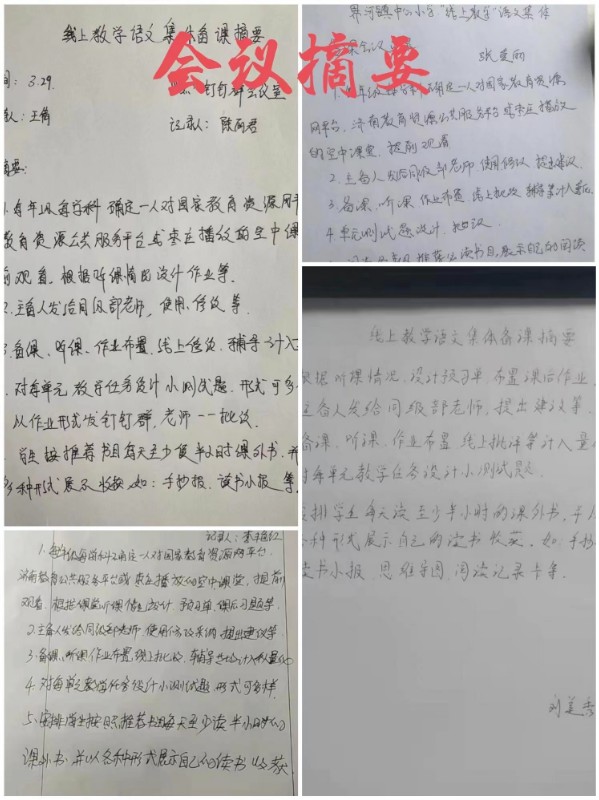 会议摘要
线上教学语文集体备课摘要
间: 3.29.
钉钉群会议室
记录人: 陈丽君
摘要:
1. 每年级每学科确定一人对国家教育资源网平
教育资源公共服务平台或枣庄播放的空中课
前观看。根据听课情况设计作业等。
2. 主备人发给同级部老师, 使用、修改等
3. 备课、听课、作业布置、线上批改、辅导计入
对每单元教学任务设计小测试题, 形式可多
以作业形式发钉钉群, 老师一一批改
按推荐书目每天至少读半小时课外书, 并
多种形式展示收获 如: 手抄报、读书小报等
界河镇中心小学“线上教学”语文集体
确定一人对国家教育资源
网平台, 济南教育资源公共服务平台或枣庄播放
的空中课堂, 提前观看
2. 主备人发给同级部老师 使用修改 提出建议
3. 备课、听课 作业布置 线上批改 辅导等计入量化
4. 单元测试题设计, 批改
线上教学语文集体备课摘要
根据听课情况, 设计预习单, 布置课后作业
主备人发给同级部老师, 提出建议等.
备课、听课、作业布置 线上批评等计入量
对每单元教学任务设计小测试题.
排学生每天读至少半小时的课外书,
各种形式展示自己的读书收获. 如 手抄
读书小报 思维导图 阅读记录卡等.
刘美秀
记录人:
1. 每年级每学科确定一人对国家教育资源网平台
济南教育公共服务平台或枣庄播放的空中课堂, 提前
观看, 根据课堂听课情况设计 预习单, 课后习题等.
2. 主备人发给同级部老师, 使用修改采纳, 提出建议等
3. 备课、听课 作业布置, 线上批改, 辅导
4. 对每单元教学任务设计小测试题, 形式可多样
5. 安排学生按照推荐书目每天至少读半小时的
课外书 并以各种形式展示自己的读书收获